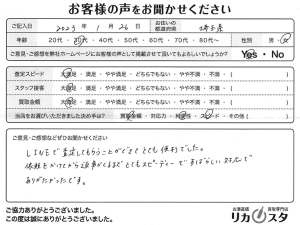 お客様の声をお聞かせください
ご記入日 2023年 1月 26日 お住いの都道府県 埼玉県
年齢 20代・30代・40代・50代・60代・70代・80代〜 性別 男・女
ご意見・ご感想を弊社ホームページにお客様の声として掲載させて頂いてもよろしいでしょうか? Yes・No
査定スピード 大満足・満足・やや満足・どちらでもない・やや不満・不満・( )
スタッフ接客 大満足・満足・やや満足・どちらでもない・やや不満・不満・( )
買取金額 大満足・満足・やや満足・どちらでもない・やや不満・不満・( )
当店をお選びいただきました決め手は? 買取金額・対応力・利便性・スピード・その他( )
ご意見・ご感想などぜひお聞かせください
LINEで査定してもらうことができてとても便利でした。
依頼をかけてから返事がくるまでとてもスピーディーですばらしい対応で
ありがたかったです。
ご協力ありがとうございました。
この度は誠にありがとうございました。
お酒高価買取専門店
リカスタ